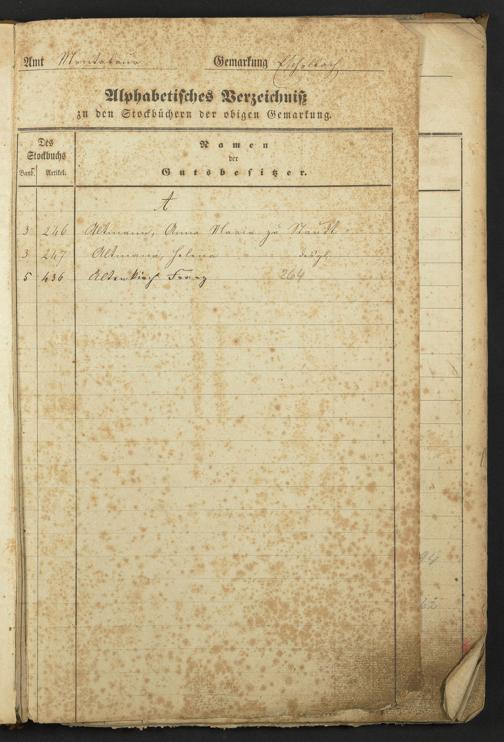 Amt Montabaur Gemarkung Eschelbach
Alphabetisches Verzeichniß
zu den Stockbüchern der obigen Gemarkung.
Des
Stockbuchs
Band. Artikel.
Namen
der
Gutsbesitzer.
A
3 246 Altmann, Anna Maria zu Staudt
3 247 Altmann, Helena desgl.
5 436 Altenkirch Franz 264